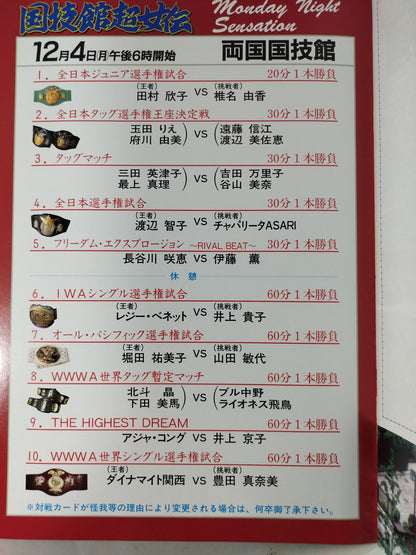 国技館超女伝
Monday Night
Sensation
12月4日(月)午後6時開始 両国国技館
1. 全日本ジュニア選手権試合 20分1本勝負
(王者) 田村 欣子 VS (挑戦者) 椎名 由香
2. 全日本タッグ選手権王座決定戦 30分1本勝負
玉田 りえ 府川 由美 ) VS ( 遠藤 信江 渡辺 美佐恵
3. タッグマッチ 30分1本勝負
三田 英津子 最上 真理 ) VS ( 吉田 万里子 谷山 美奈
4. 全日本選手権試合 30分1本勝負
(王者) 渡辺 智子 VS (挑戦者) チャパリータASARI
5. フリーダム・エクスプロージョン 〜RIVAL BEAT〜 30分1本勝負
長谷川 咲恵 VS 伊藤 薫
休憩
6. IWAシングル選手権試合 60分1本勝負
(王者) レジー・ベネット VS (挑戦者) 井上 貴子
7. オール・パシフィック選手権試合 60分1本勝負
(王者) 堀田 祐美子 VS (挑戦者) 山田 敏代
8. WWWA世界タッグ暫定マッチ 60分1本勝負
北斗 晶 下田 美馬 ) VS ( ブル中野 ライオネス飛鳥
9. THE HIGHEST DREAM 60分1本勝負
アジャ・コング VS 井上 京子
10. WWWA世界シングル選手権試合 60分1本勝負
(王者) ダイナマイト関西 VS (挑戦者) 豊田 真奈美
※対戦カードが怪我等の理由により変更される場合は、何卒御了承下さい。